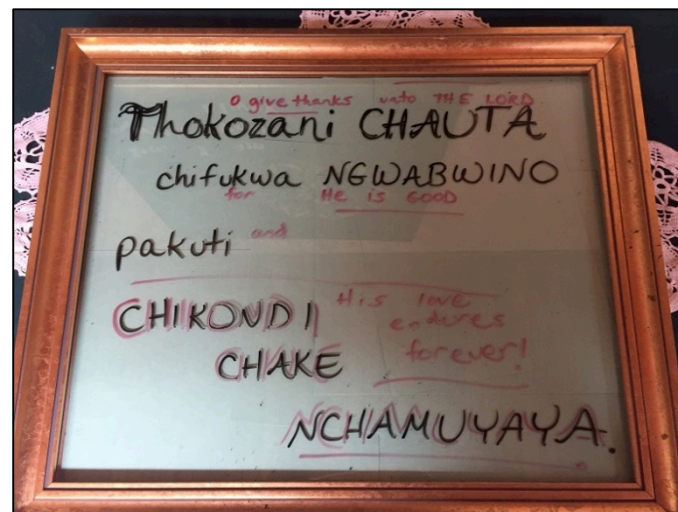 O give thanks unto THE LORD
Thokozani CHAUTA
chifukwa NGWABWINO
for He is GOOD
pakuti and
CHIKONDI His love
endures
CHAKE forever!
NCHAMUYAYA.